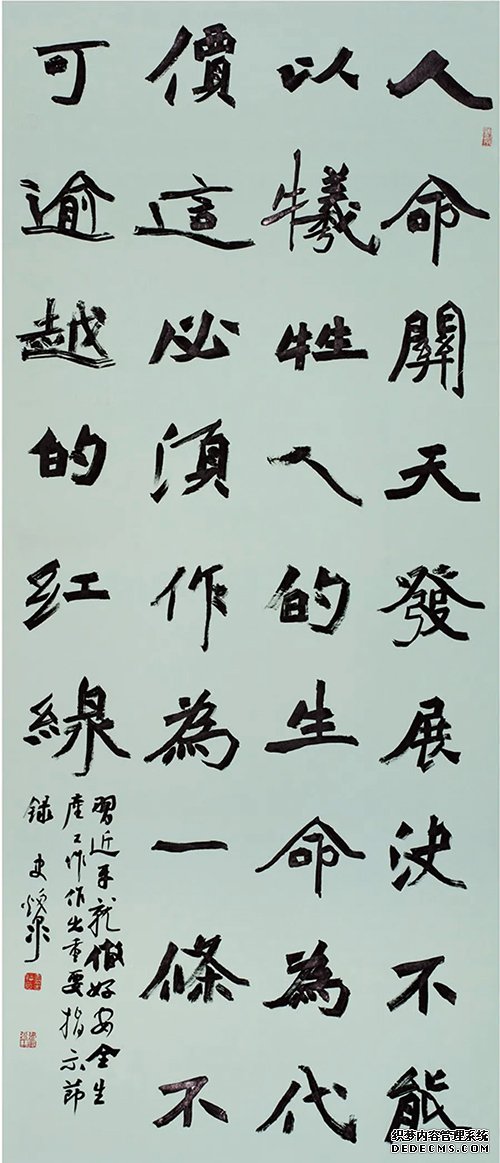 人命關天發展決不能
以犧牲人的生命為代
價這必須作為一條不
可逾越的红線
習近平就做好安全生
產工作作出重要指示節
録 史焕泉
织梦内容管理系统
DEDECMS.COM